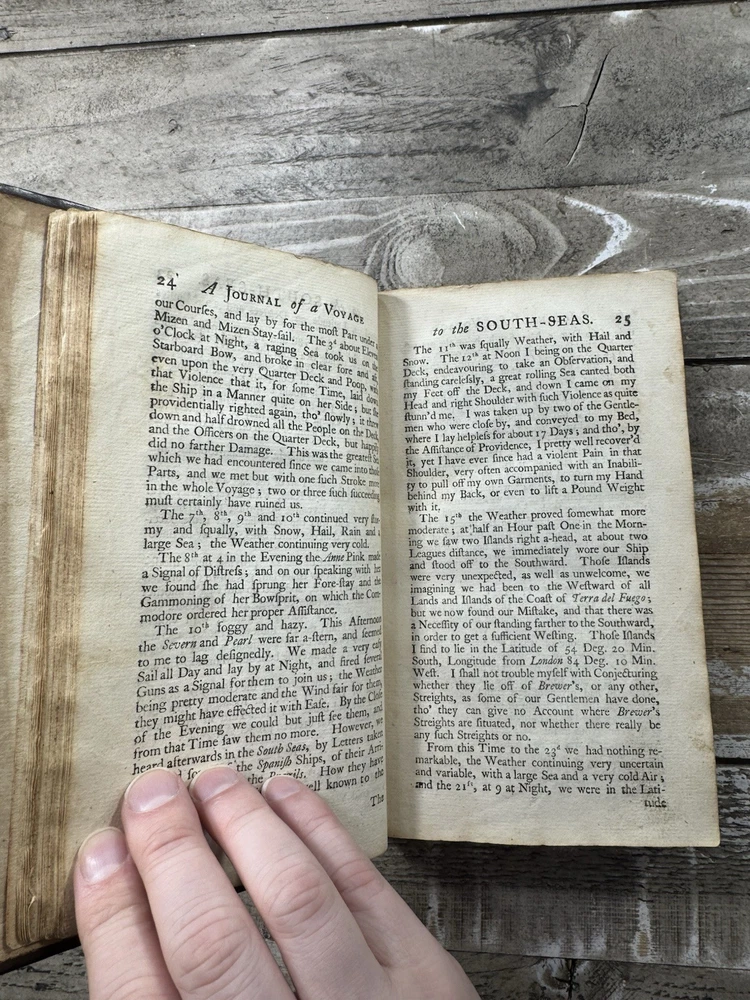 24 A JOURNAL of a VOYAGE
our Courſes, and lay by for the moſt Part under a
Mizen and Mizen Stay-ſail. The 3ᵈ about Eleven
o'Clock at Night, a raging Sea took us on the
Starboard Bow, and broke in clear fore and aft
even upon the very Quarter Deck and Poop, with
that Violence that it, for ſome Time, laid down
the Ship in a Manner quite on her Side; but ſhe
providentially righted again, tho' ſlowly; it threw
down and half drowned all the People on the Deck,
and the Officers on the Quarter Deck, but happily
did no farther Damage. This was the greateſt Sea
which we had encountered ſince we came into theſe
Parts, and we met but with one ſuch Stroke more
in the whole Voyage; two or three ſuch ſucceeding
muſt certainly have ruined us.
The 7ᵗʰ, 8ᵗʰ, 9ᵗʰ and 10ᵗʰ continued very ſtor-
my and ſqually, with Snow, Hail, Rain and a
large Sea; the Weather continuing very cold.
The 8ᵗʰ at 4 in the Evening the Anne Pink made
a Signal of Diſtreſs; and on our ſpeaking with her
we found ſhe had ſprung her Fore-ſtay and the
Gammoning of her Bowſprit, on which the Com-
modore ordered her proper Aſſiſtance.
The 10ᵗʰ foggy and hazy. This Afternoon
the Severn and Pearl were far a-ſtern, and ſeemed
to me to lag deſignedly. We made a very eaſy
Sail all Day and lay by at Night, and fired ſeveral
Guns as a Signal for them to join us; the Weather
being pretty moderate and the Wind fair for them,
they might have effected it with Eaſe. By the Cloſe
of the Evening we could but juſt ſee them, and
from that Time ſaw them no more. However, we
heard afterwards in the South Seas, by Letters taken
the Spaniſh Ships, of their Arri-
the Brazils. How they have
well known to the
The
to the SOUTH-SEAS. 25
The 11ᵗʰ was ſqually Weather, with Hail and
Snow. The 12ᵗʰ at Noon I being on the Quarter
Deck, endeavouring to take an Obſervation, and
ſtanding careleſsly, a great rolling Sea canted both
my Feet off the Deck, and down I came on my
Head and right Shoulder with ſuch Violence as quite
ſtunn'd me. I was taken up by two of the Gentle-
men who were cloſe by, and conveyed to my Bed,
where I lay helpleſs for about 17 Days; and tho', by
the Aſſiſtance of Providence, I pretty well recover'd
it, yet I have ever ſince had a violent Pain in that
Shoulder, very often accompanied with an Inabili-
ty to pull off my own Garments, to turn my Hand
behind my Back, or even to lift a Pound Weight
with it.
The 15ᵗʰ the Weather proved ſomewhat more
moderate; at half an Hour paſt One in the Morn-
ing we ſaw two Iſlands right a-head, at about two
Leagues diſtance, we immediately wore our Ship
and ſtood off to the Southward. Thoſe Iſlands
were very unexpected, as well as unwelcome, we
imagining we had been to the Weſtward of all
Lands and Iſlands of the Coaſt of Terra del Fuego;
but we now found our Miſtake, and that there was
a Neceſſity of our ſtanding farther to the Southward,
in order to get a ſufficient Weſting. Thoſe Iſlands
I find to lie in the Latitude of 54 Deg. 20 Min.
South, Longitude from London 84 Deg. 10 Min.
Weſt. I ſhall not trouble myſelf with Conjecturing
whether they lie off of Brewer's, or any other,
Streights, as ſome of our Gentlemen have done,
tho' they can give no Account where Brewer's
Streights are ſituated, nor whether there really be
any ſuch Streights or no.
From this Time to the 23ᵈ we had nothing re-
markable, the Weather continuing very uncertain
and variable, with a large Sea and a very cold Air;
and the 21ſᵗ, at 9 at Night, we were in the Lati-
tude